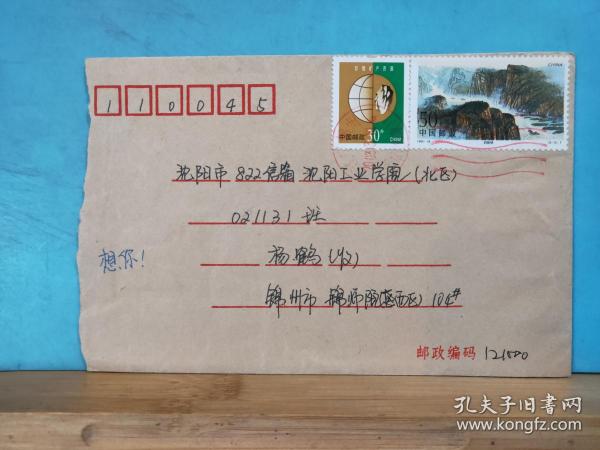 110045
保护人类共有的家园
中国邮政 30分 CHINA
CHINA
50分
中国邮政
沈阳市 822信箱 沈阳工业学院(北区)
021131 班
杨鹤(收)
想你!
锦州市 锦师院(西区) 104#
邮政编码 121500
孔夫子旧书网
www.kongfz.com